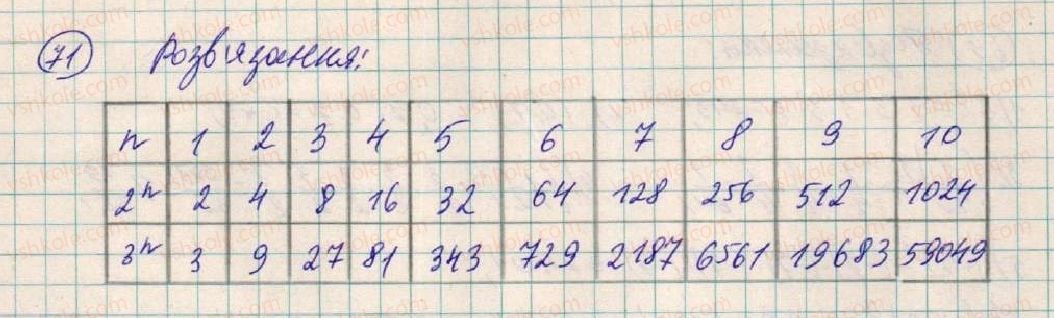 71 Розв'язання:
n 1 2 3 4 5 6 7 8 9 10
2ⁿ 2 4 8 16 32 64 128 256 512 1024
3ⁿ 3 9 27 81 343 729 2187 6561 19683 59049